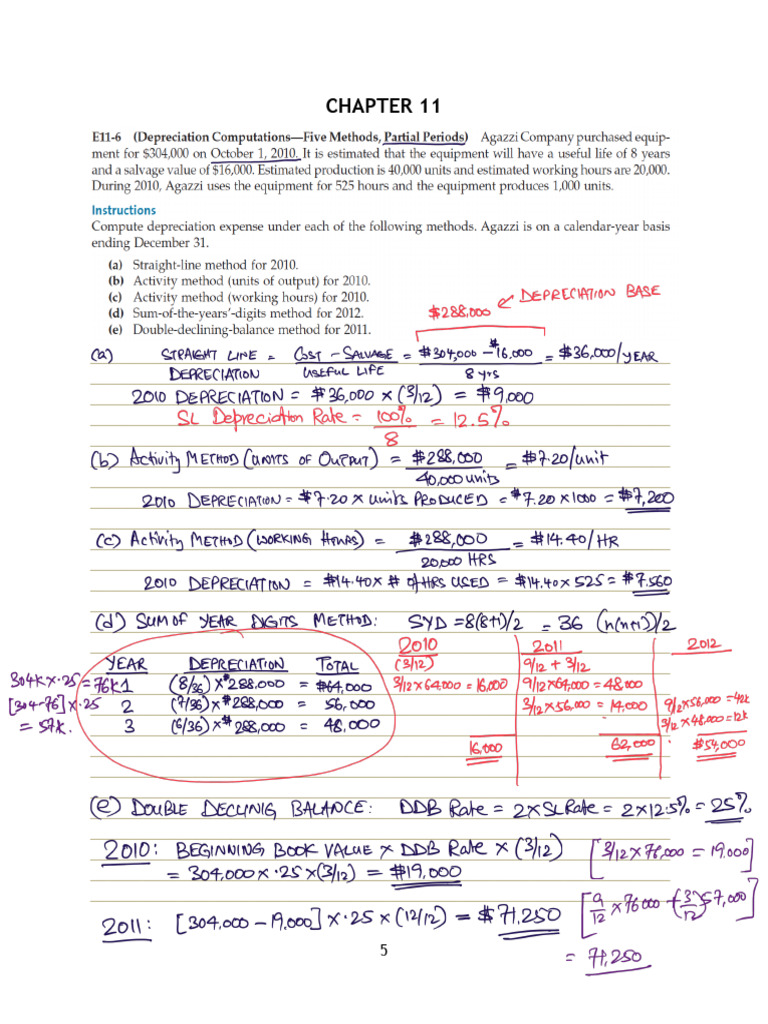 CHAPTER 11
E11-6 (Depreciation Computations—Five Methods, Partial Periods) Agazzi Company purchased equip-
ment for $304,000 on October 1, 2010. It is estimated that the equipment will have a useful life of 8 years
and a salvage value of $16,000. Estimated production is 40,000 units and estimated working hours are 20,000.
During 2010, Agazzi uses the equipment for 525 hours and the equipment produces 1,000 units.
Instructions
Compute depreciation expense under each of the following methods. Agazzi is on a calendar-year basis
ending December 31.
(a) Straight-line method for 2010.
(b) Activity method (units of output) for 2010.
(c) Activity method (working hours) for 2010.
(d) Sum-of-the-years'-digits method for 2012.
(e) Double-declining-balance method for 2011.
$288,000 ← DEPRECIATION BASE
(a) STRAIGHT LINE = COST - SALVAGE = $304,000 - $16,000 = $36,000/YEAR
DEPRECIATION USEFUL LIFE 8 yrs
2010 DEPRECIATION = $36,000 × (3/12) = $9,000
SL Depreciation Rate = 100% = 12.5%
8
(b) Activity METHOD (UNITS OF OUTPUT) = $288,000 = $7.20/unit
40,000 units
2010 DEPRECIATION = $7.20 × units PRODUCED = $7.20 × 1000 = $7,200
(c) Activity METHOD (WORKING HOURS) = $288,000 = $14.40/HR
20,000 HRS
2010 DEPRECIATION = $14.40 × # of HRS USED = $14.40 × 525 = $7,560
(d) SUM OF YEAR DIGITS METHOD: SYD = 8(8+1)/2 = 36 (n(n+1))/2
2010 2011 2012
YEAR DEPRECIATION TOTAL (3/12) 9/12 + 3/12
304k × .25 = 76k 1 (8/36) × $288,000 = $64,000 3/12 × 64,000 = 16,000 9/12 × 64,000 = 48,000
[304-76] × .25 2 (7/36) × $288,000 = 56,000 3/12 × 56,000 = 14,000 9/12 × 56,000 = 42k
= 57k. 3 (6/36) × $288,000 = 48,000 3/12 × 48,000 = 12k
16,000 62,000 $54,000
(e) DOUBLE DECLINIG BALANCE: DDB Rate = 2 × SL Rate = 2 × 12.5% = 25%
2010: BEGINNING BOOK VALUE × DDB Rate × (3/12) [3/12 × 76,000 = 19,000]
= 304,000 × .25 × (3/12) = $19,000
2011: [304,000 - 19,000] × .25 × (12/12) = $71,250 [9/12 × 76000 + (3/12) 57,000]
= 71,250
5